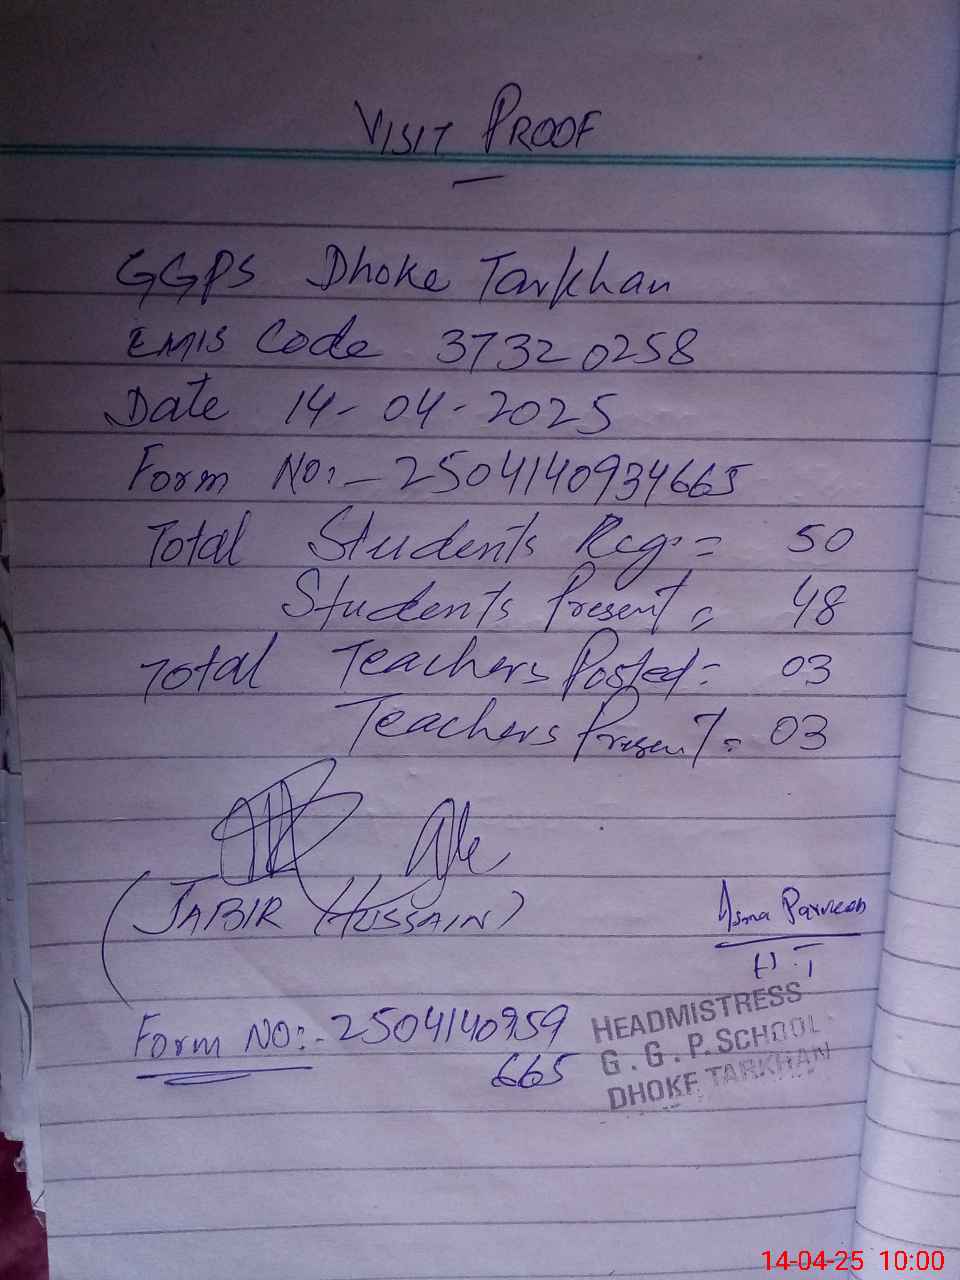 VISIT PROOF
GGPS Dhoke Tarkhan
EMIS Code 37320258
Date 14-04-2025
Form No:- 2504140934665
Total Students Reg:= 50
Students Present = 48
Total Teachers Posted= 03
Teachers Present= 03
(JABIR HUSSAIN)
Asma Parveen
H.T
Form NO:- 2504140959
665
HEADMISTRESS
G.G.P.SCHOOL
DHOKE TARKHAN
14-04-25 10:00